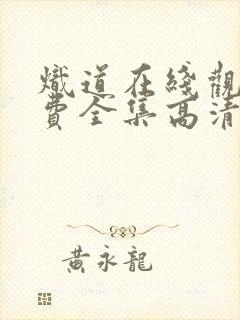 熾道在綫觀
費全集高清
黃永龍